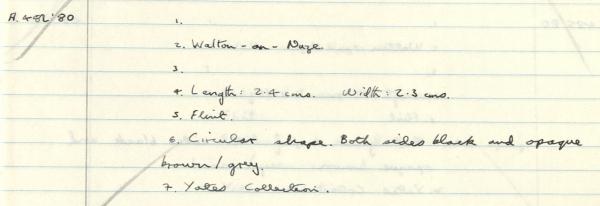 A.482'80
1.
2. Walton-on-Naze
3.
4. Length: 2.4 cms. Width: 2.3 cms.
5. Flint.
6. Circular shape. Both sides black and opaque
brown/grey.
7. Yates Collection.